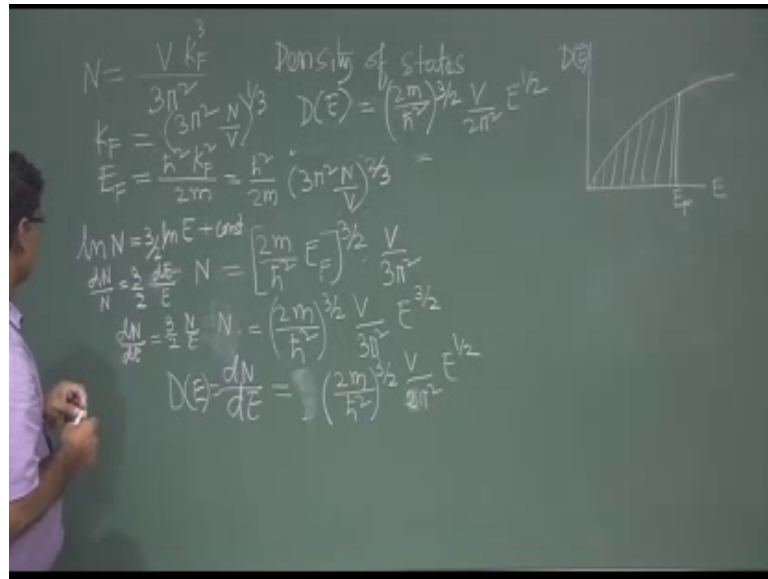 N = V k_F^3 / 3π²
Density of states
k_F = (3π² N/V)^1/3
D(E) = (2m/ħ²)^3/2 V/2π² E^1/2
E_F = ħ² k_F² / 2m = ħ²/2m (3π² N/V)^2/3
=
ln N = 3/2 ln E + const
dN/N = 3/2 dE/E
N = [2m/ħ² E_F]^3/2 V/3π²
dN/dE = 3/2 N/E
N = (2m/ħ²)^3/2 V/3π² E^3/2
D(E) = dN/dE = (2m/ħ²)^3/2 V/2π² E^1/2
D(E)
E_F
E